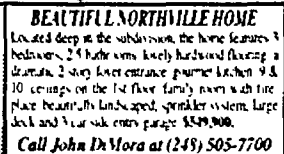 BEAUTIFUL NORTHVILLE HOME
Located deep in the subdivision, the home features 3
bedrooms, 2.5 bathrooms lovely hardwood flooring a
dramatic 2 story foyer entrance gourmet kitchen 9 &
10 ceilings on the 1st floor family room with fire
place beautifully landscaped, sprinkler system, large
deck and 3 car side entry garage $549,900.
Call John DiMora at (248) 505-7700